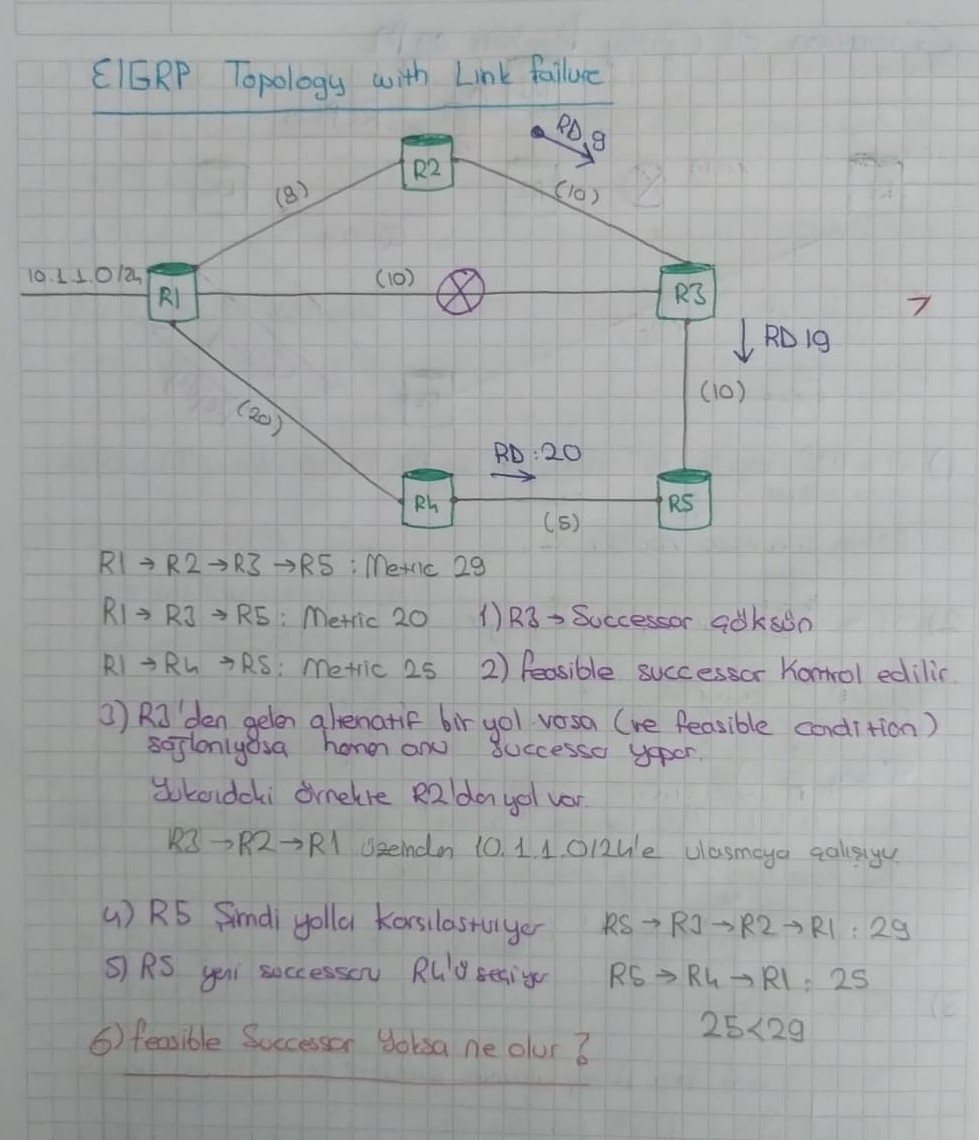 EIGRP Topology with Link failure
RD 9
R2
(9)
(10)
10.1.1.0/24
R1
(10)
R3
RD 19
(10)
(20)
RD:20
R4
R5
(5)
R1 → R2 → R3 → R5 : Metric 29
R1 → R3 → R5 : Metric 20 1) R3 → Successor çöksün
R1 → R4 → R5 : Metric 25 2) feasible successor kontrol edilir.
3) R3'den gelen altenatif bir yol vasa (ve feasible condition)
sağlanıyosa hemen onu successo yapar.
Yukardaki örnekte R2'den yol var.
R3 → R2 → R1 üzeinden 10.1.1.0/24'e ulasmaya çalışıyo
4) R5 Şimdi yolla karsılastııyer R5 → R3 → R2 → R1 : 29
5) R5 yeni successoru R4'ü seçiyo R5 → R4 → R1 : 25
25<29
6) feasible Successor Yoksa ne olur ?